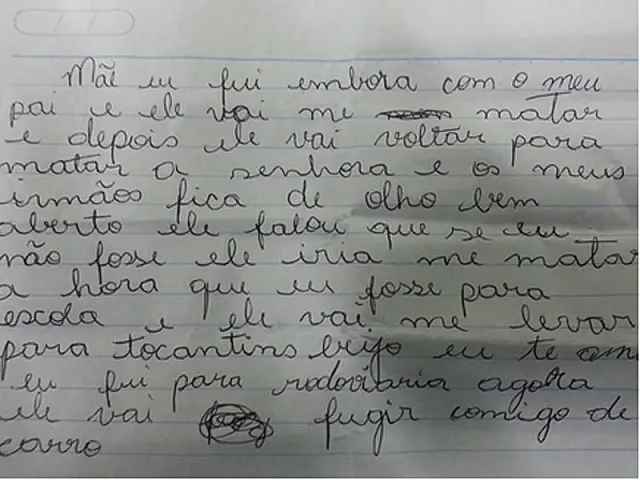 Mãe eu fui embora com o meu
pai e ele vai me matar
e depois ele vai voltar para
matar a senhora e os meus
irmãos fica de olho bem
aberto ele falou que se eu
não fosse ele iria me matar
a hora que eu fosse para
escola e ele vai me levar
para tocantins beijo eu te am
eu fui para rodoviaria agora
ele vai fugir comigo de
carro